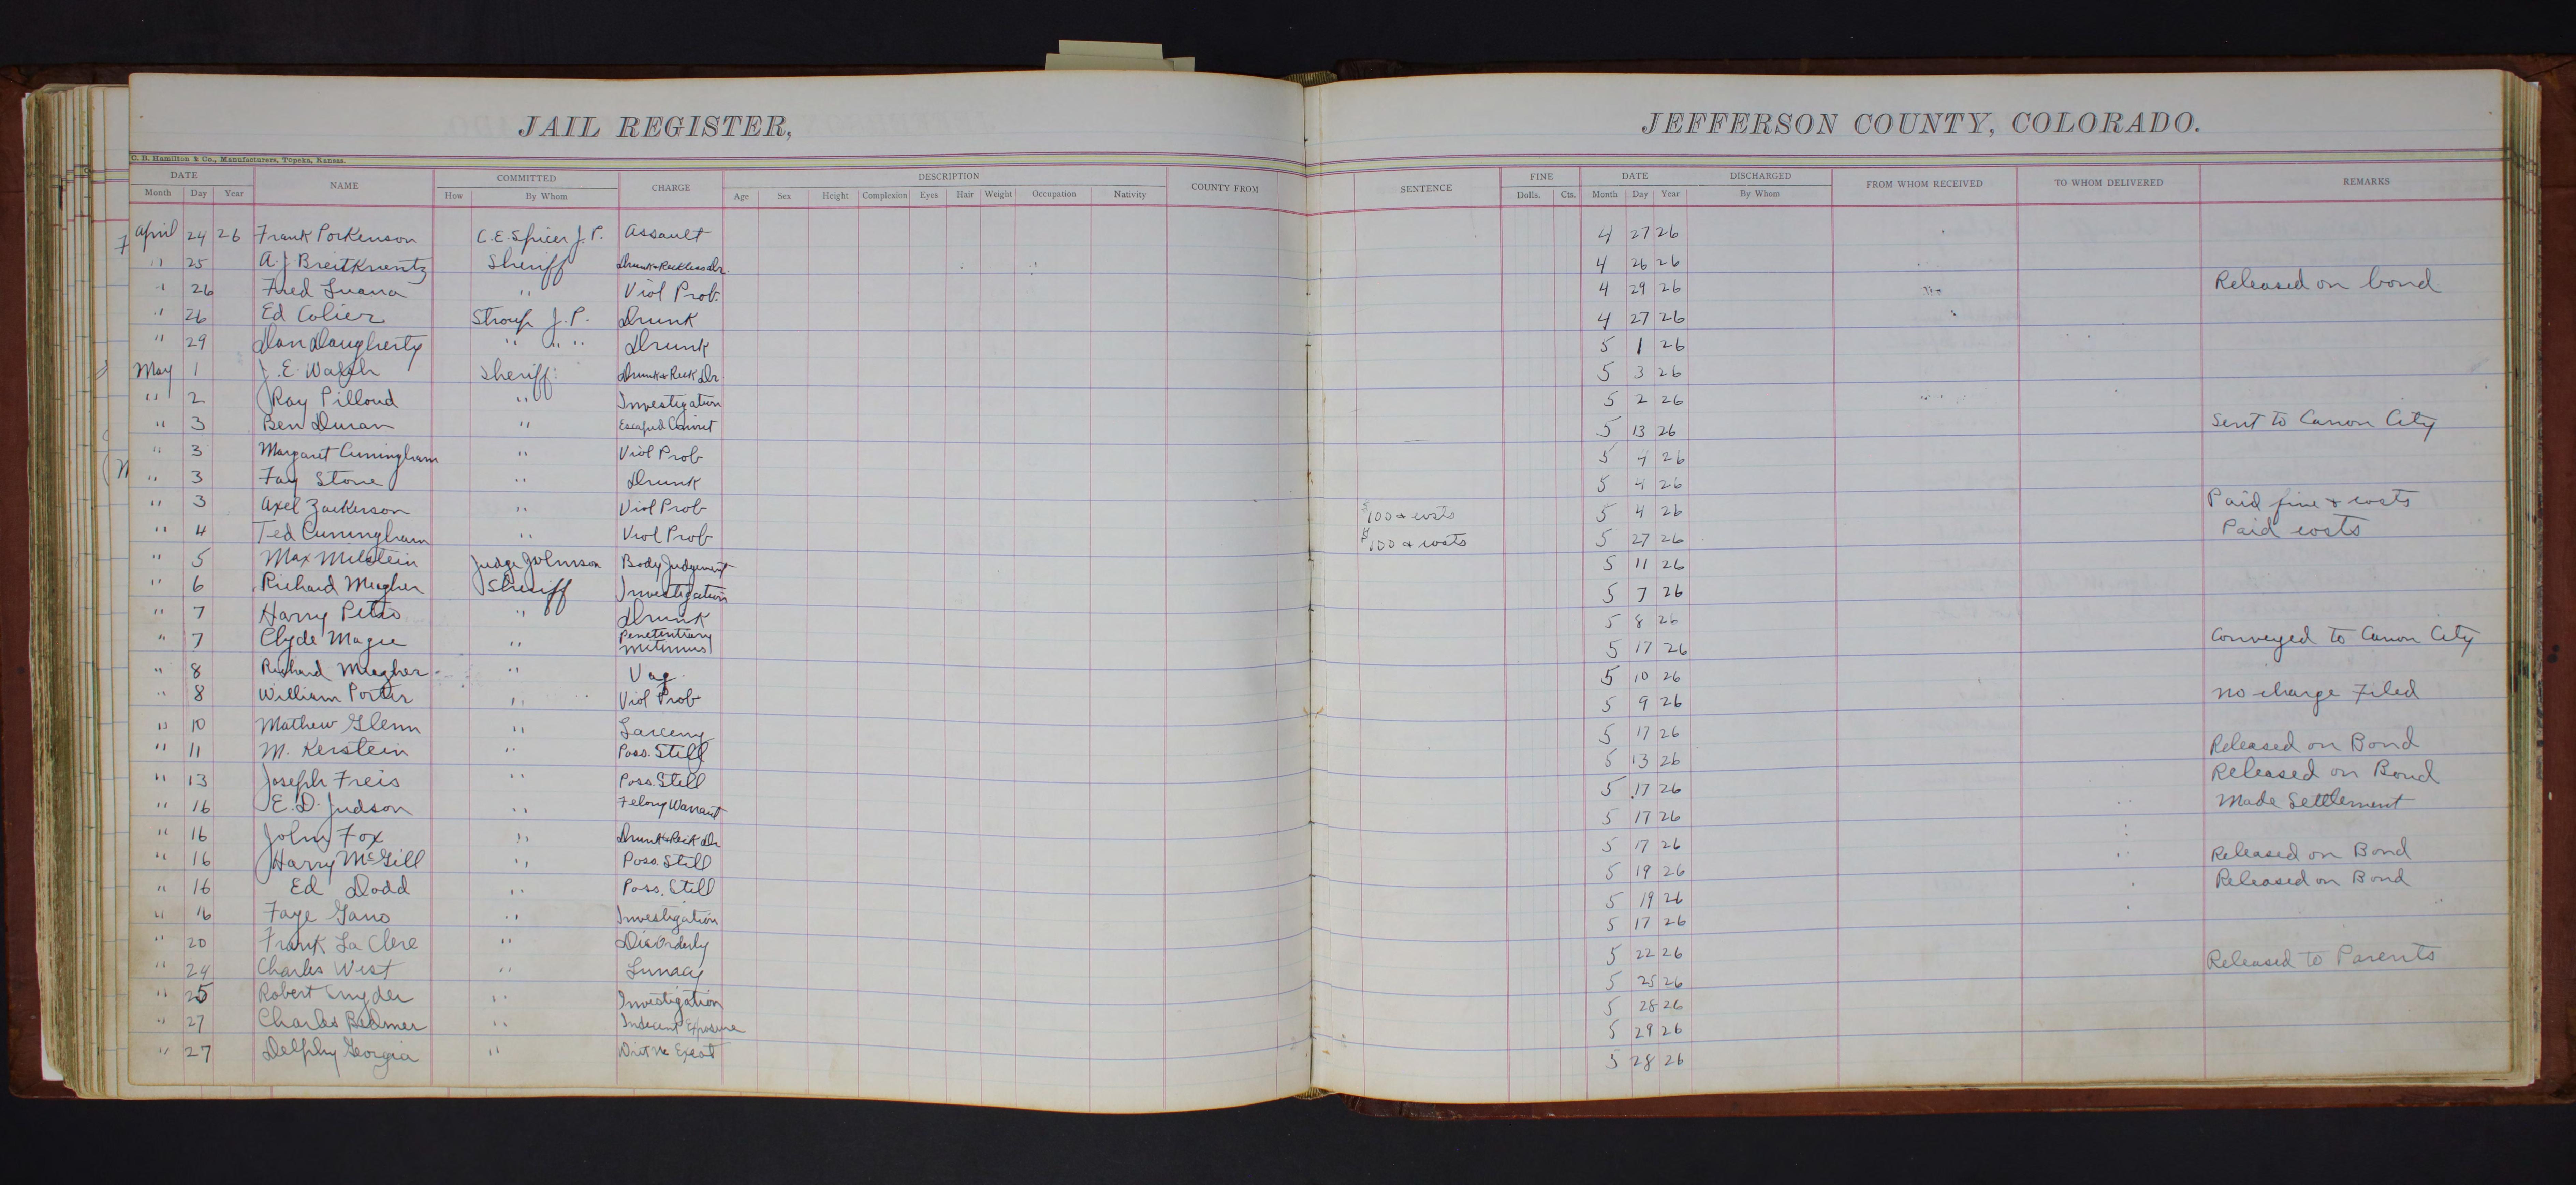 JAIL REGISTER, JEFFERSON COUNTY, COLORADO.
C. B. Hamilton & Co., Manufacturers, Topeka, Kansas.
DATE NAME COMMITTED CHARGE DESCRIPTION COUNTY FROM SENTENCE FINE DATE DISCHARGED FROM WHOM RECEIVED TO WHOM DELIVERED REMARKS
Month Day Year How By Whom Age Sex Height Complexion Eyes Hair Weight Occupation Nativity Dolls. Cts. Month Day Year By Whom
April 24 26 Frank Porkenson C.E. Spicer J.P. Assault 4 27 26
" 25 A.J Breitkrentz Sheriff Drunk & Reckless Dr. 4 26 26
" 26 Fred Luana " Viol Prob. 4 29 26 Released on bond
" 26 Ed Colier Stroup J.P. Drunk 4 27 26
" 29 Dan Daugherty " " " Drunk 5 1 26
May 1 J.E. Walsh Sheriff Drunk & Reck Dr. 5 3 26
" 2 Ray Pilloud " Investigation 5 2 26
" 3 Ben Duran " Escaped Convict 5 13 26 Sent to Canon City
" 3 Margaret Cuningham " Viol Prob 5 4 26
" 3 Fay Stone " Drunk 5 4 26
" 3 Axel Zackerson " Viol Prob $100 & costs 5 4 26 Paid fine & costs
" 4 Ted Cuningham " Viol Prob $100 & costs 5 27 26 Paid costs
" 5 Max Milstein Judge Johnson Body Judgement 5 11 26
" 6 Richard Meagher Sheriff Investigation 5 7 26
" 7 Harry " Drunk 5 8 26
" 7 Clyde Magee " Penetentiary mitimus 5 17 26 Conveyed to Canon City
" 8 Richard Meagher " Vag. 5 10 26
" 8 William Porter " Viol Prob 5 9 26 no charge Filed
" 10 Mathew Glenn " Larceny 5 17 26
" 11 M. Kerstein " Poss. Still 5 13 26 Released on Bond
" 13 Joseph Freis " Poss. Still 5 17 26 Released on Bond
" 16 E.D. Judson " Felony Warrant 5 17 26 Made Settlement
" 16 John Fox " Drunk & Reck Dr 5 17 26
" 16 Harry McGill " Poss. Still 5 19 26 Released on Bond
" 16 Ed Dodd " Poss. Still 5 19 26 Released on Bond
" 16 Faye Gano " Investigation 5 17 26
" 20 Frank La Clere " Disorderly 5 22 26
" 24 Charles West " Lunacy 5 25 26 Released to Parents
" 25 Robert Snyder " Investigation 5 28 26
" 27 Charles Belmer " Indecent Exposure 5 29 26
" 27 Delphy Georgia " Writ Ne Exeat 5 28 26